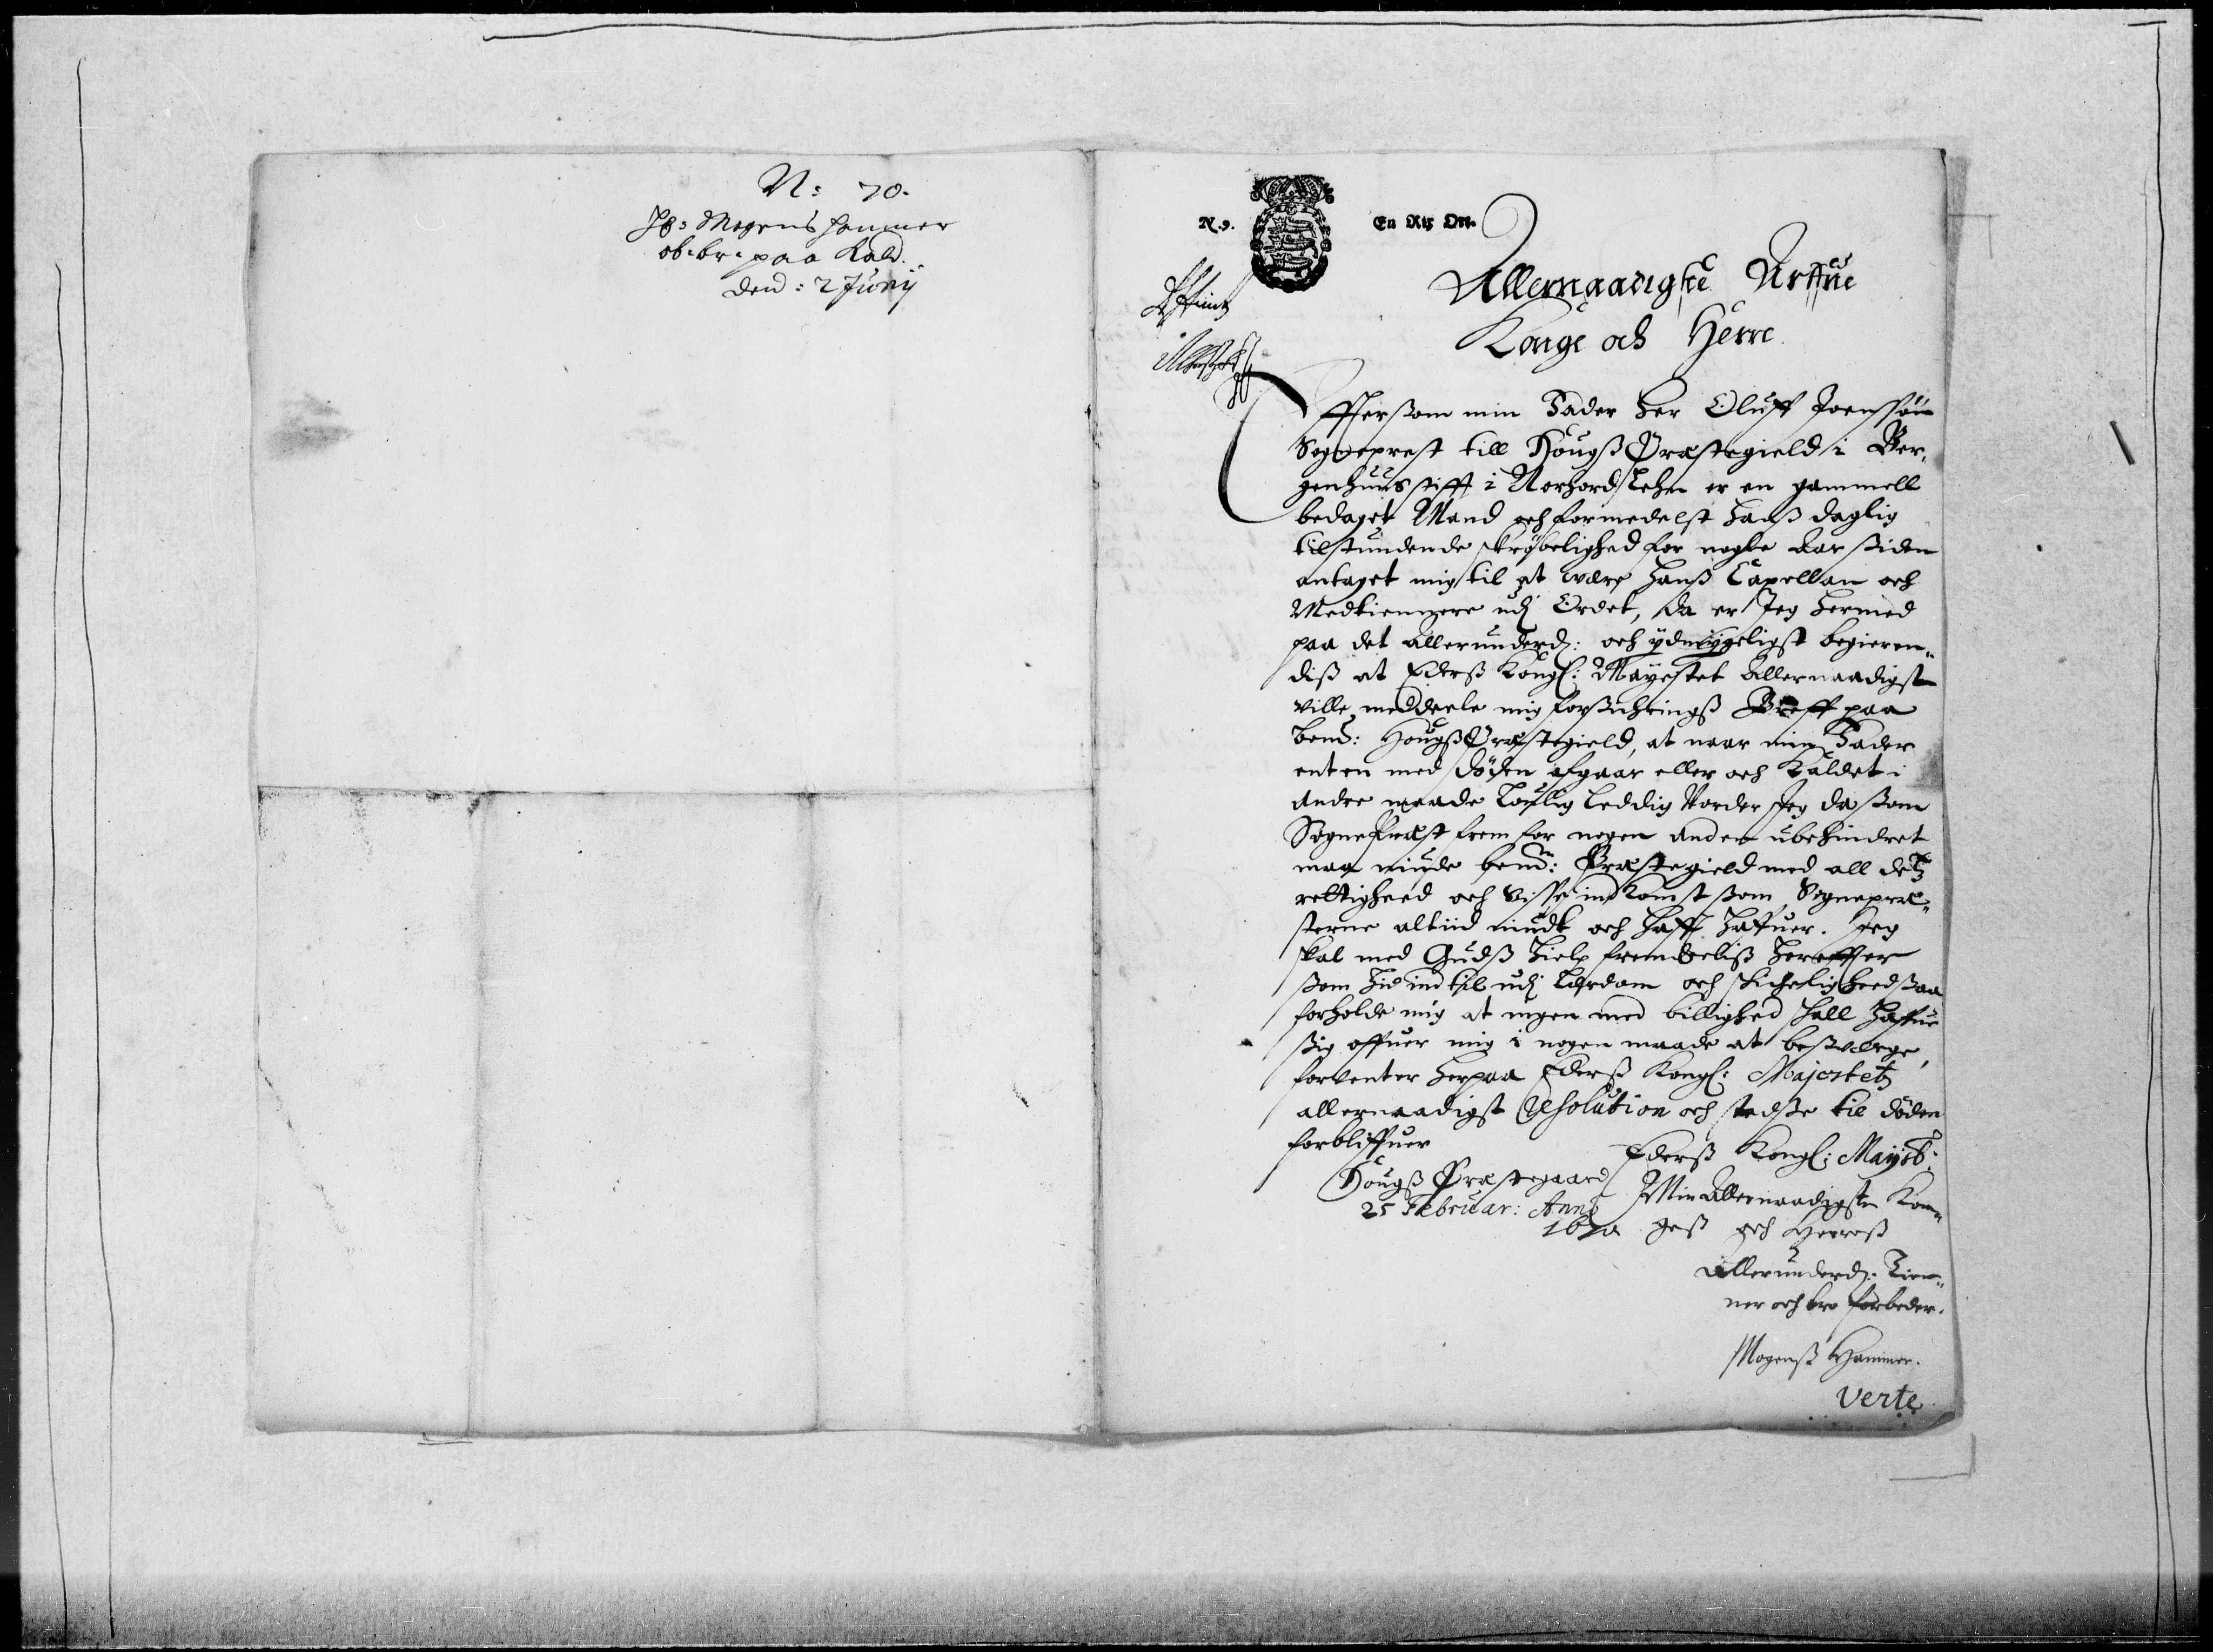 N: 70.
Hr: Mogens Hammer
ob. br. paa Kald.
Den: 2 Junij
N. 9.
En Rix Ort.
Allernaadigste Arffue
Konge och Herre.
Effterssom min Fader Her Oluff Joenssøn
Sogneprest till Hougß Præstegield i Ber,
genhuus stifft i Norhordlehn er en gammell
bedaget Mand och formedelst hanß daglig
tilstundende skrøbelighed for nogle Aar siden
antaget mig til at være hanß Capellan och
Medtiennere udj Ordet, da er Jeg hermed
paa det allerunderd: och ydmygeligst begieren„
diß at Ederß Kongl: Mayestet Allernaadigst
ville meddeele mig forsichringß Breff paa
bemd: Hougß Præstegield, at naar min Fader
enten med døden afgaar eller och Kaldet i
andre maade Lovlig Leddig vorder Jeg da ssom
Sognepræst frem for nogen anden ubehindret
maa niude bemd: Præstegield med all detz
rettigheed och visse indkomst ssom Sognepræ„
sterne altiid niudt och hafft haffuer. Jeg
skal med Gudß hielp fremdeeliß hereffter
ssom hid indtil udj Lærdom och skickelighed ssaa
forholde mig at ingen med billighed skall haffue
sig offuer mig i nogen maade at besværge,
forventer herpaa Ederß Kongl: Majestetz
allernaadigst Resolution och stedsse til døden
forbliffuer
Ederß Kongl: Mayst:
Hougß Præstegaard
25 Februar: Anno
1670
Min Allernaadigste Kon„
geß och Herreß
allerunderd: Tien„
ner och tro forbeder.
Mogenß Hammer.
Verte